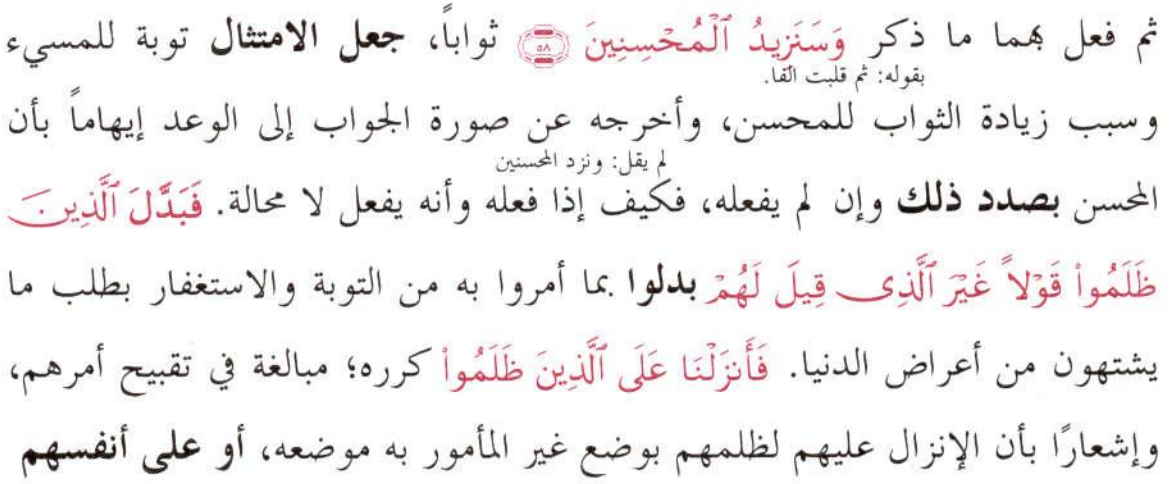 ثم فعل بهما ما ذكر وَسَنَزِيدُ ٱلْمُحْسِنِينَ ۝٥٨ ثواباً، جعل الامتثال توبة للمسيء
بقوله: ثم قلبت ألفا.
وسبب زيادة الثواب للمحسن، وأخرجه عن صورة الجواب إلى الوعد إيهاماً بأن
لم يقل: ونزد المحسنين
المحسن بصدد ذلك وإن لم يفعله، فكيف إذا فعله وأنه يفعل لا محالة. فَبَدَّلَ ٱلَّذِينَ
ظَلَمُواْ قَوْلاً غَيْرَ ٱلَّذِى قِيلَ لَهُمْ بدلوا بما أمروا به من التوبة والاستغفار بطلب ما
يشتهون من أعراض الدنيا. فَأَنزَلْنَا عَلَى ٱلَّذِينَ ظَلَمُواْ كرره؛ مبالغة في تقبيح أمرهم،
وإشعارًا بأن الإنزال عليهم لظلمهم بوضع غير المأمور به موضعه، أو على أنفسهم